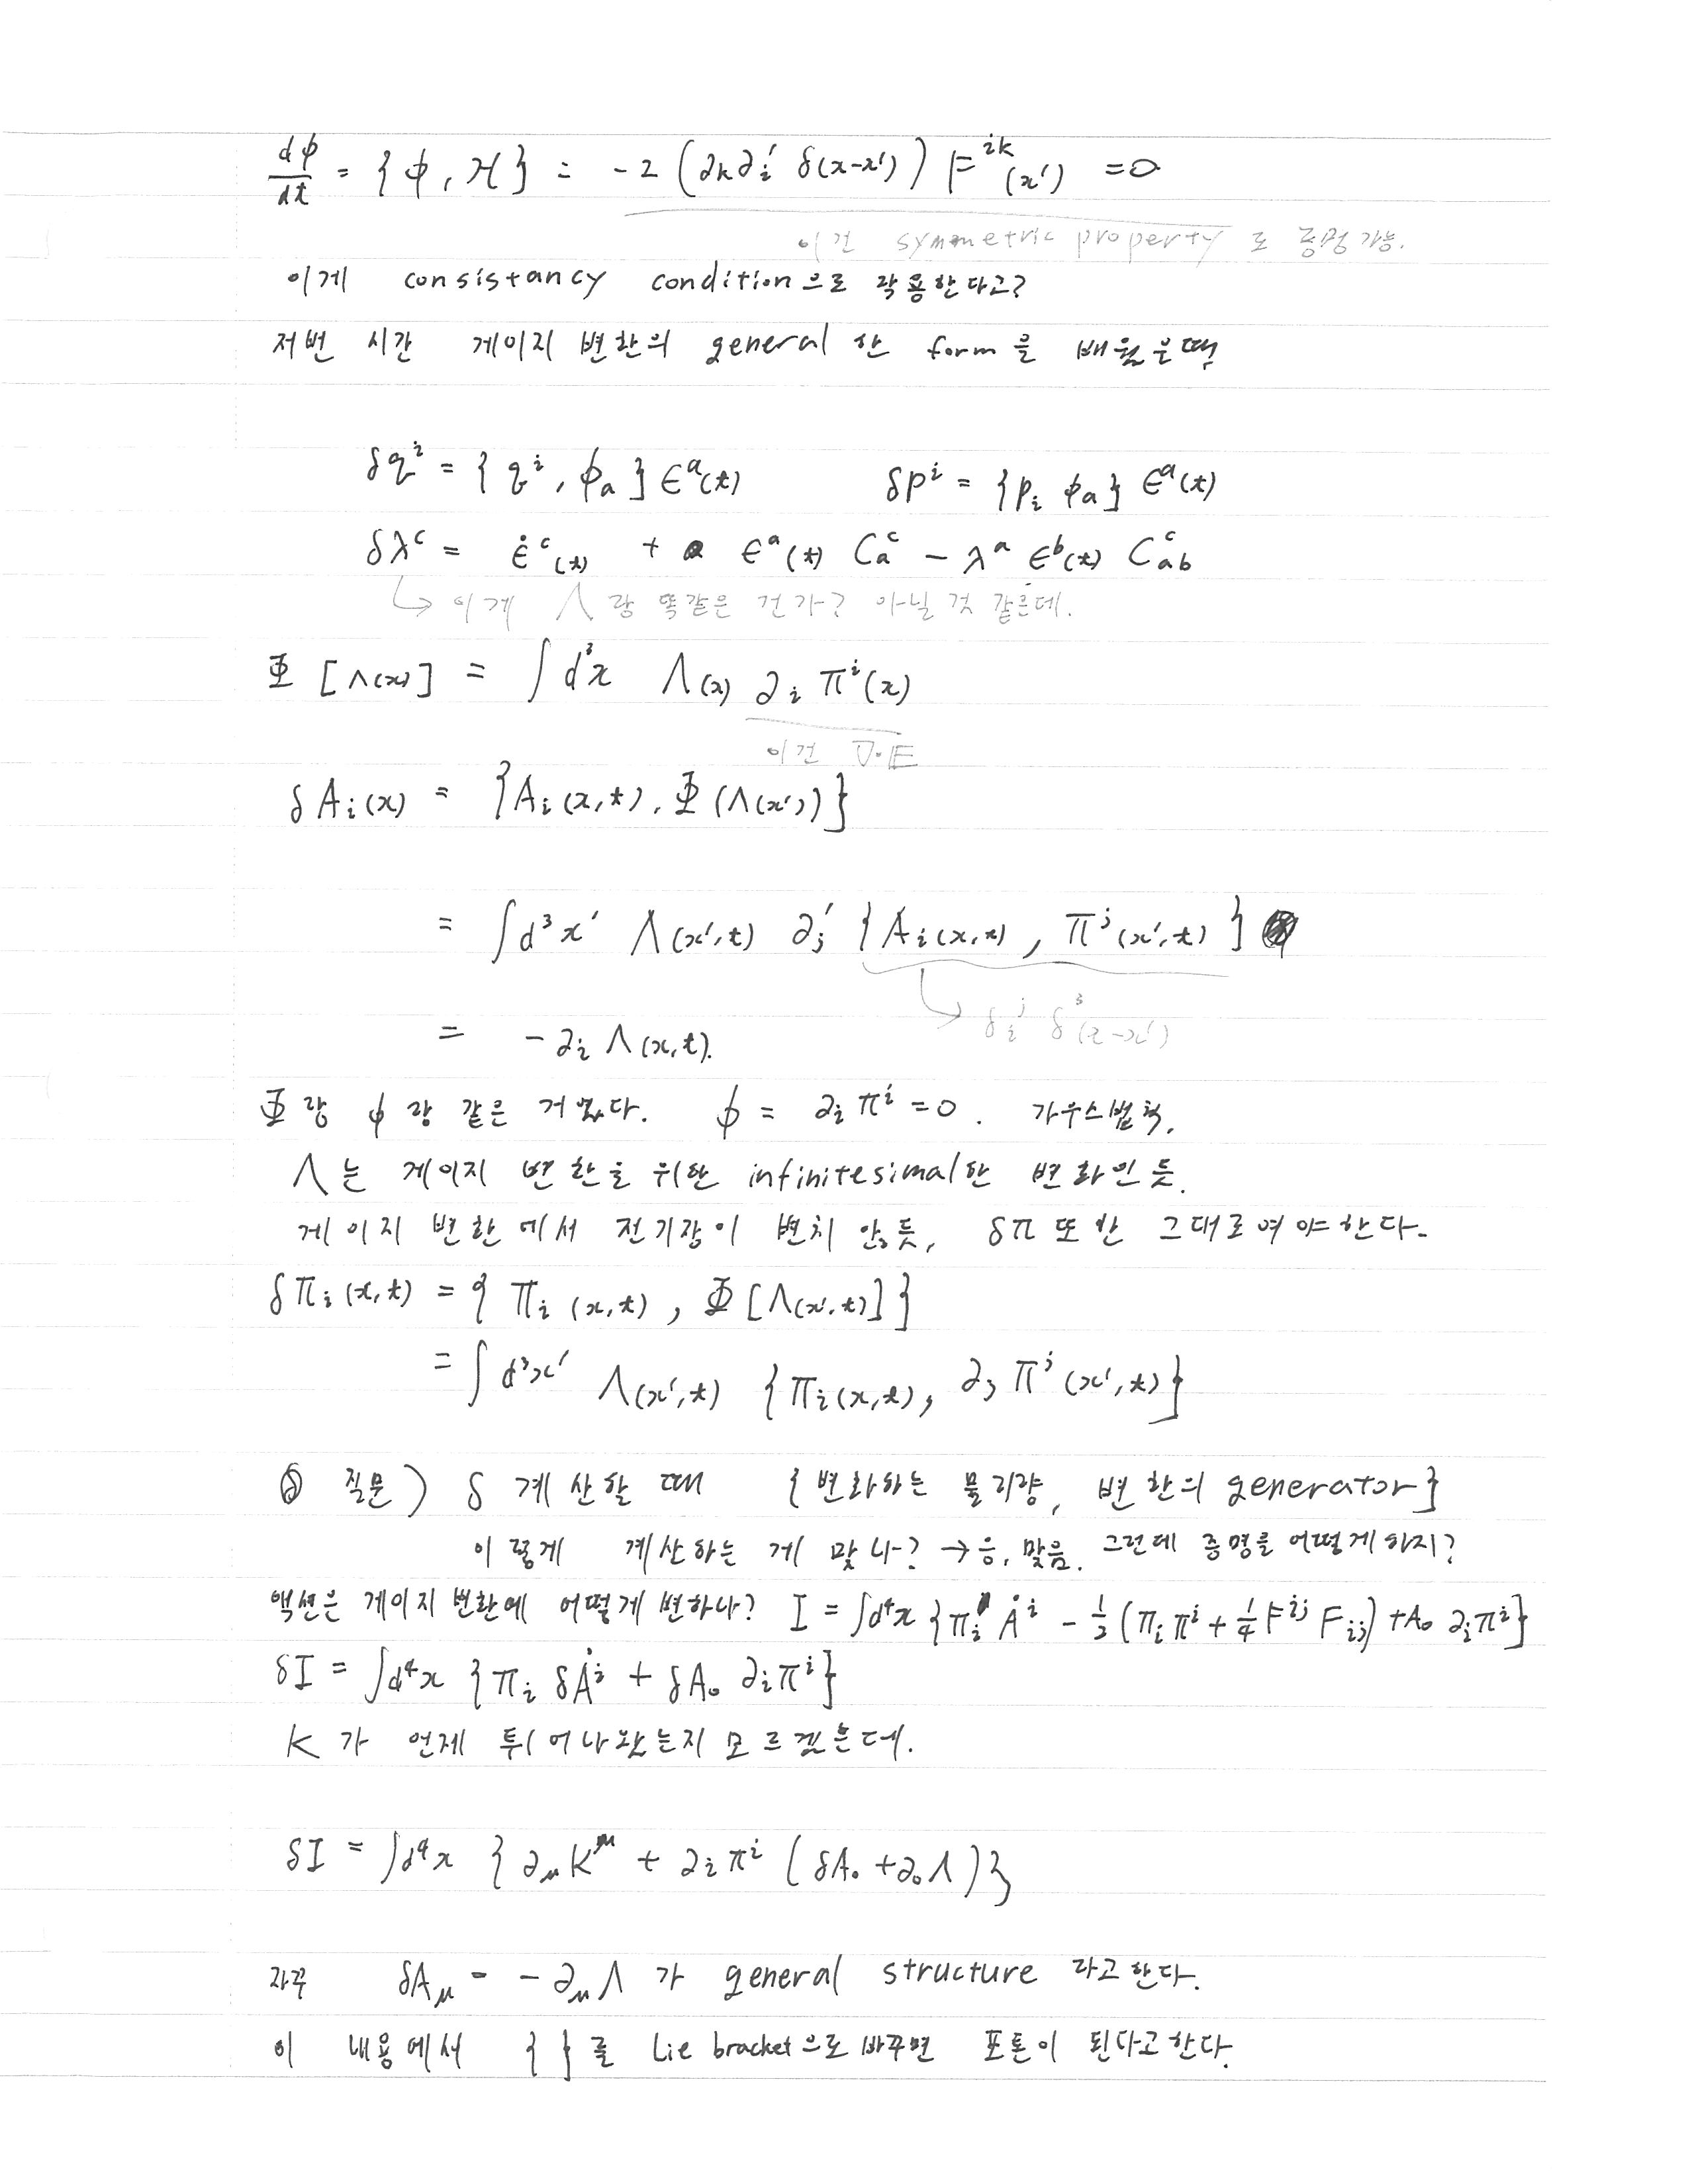 dφ/dt = {φ, H} = -2 (∂k∂i' δ(x-x')) F^{ik}(x') = 0
이건 symmetric property로 증명가능.
이게 consistancy condition으로 작용한다고?
저번 시간 게이지 변환의 general한 form을 배웠는데,
δq^i = {q^i, φ_a} ϵ^a(t) δp^i = {p_i φ_a} ϵ^a(t)
δλ^c = ϵ̇^c(t) + ϵ^a(t) C_a^c - λ^a ϵ^b(t) C_{ab}^c
↳ 이게 Λ랑 똑같은 건가? 아닐 것 같은데.
Φ[Λ(x)] = ∫d³x Λ(x) ∂_i π^i(x)
이건 ∇·E
δA_i(x) = {A_i(x,t), Φ(Λ(x'))}
= ∫d³x' Λ(x',t) ∂_j' {A_i(x,t), π^j(x',t)}
↳ δ_i^j δ³(x-x')
= -∂_i Λ(x,t).
Φ랑 φ랑 같은 거였다. φ = ∂_i π^i = 0. 가우스법칙.
Λ는 게이지 변환을 위한 infinitesimal한 변화인듯.
게이지 변환에서 전기장이 변치 않듯, δπ 또한 그대로여야한다.
δπ_i(x,t) = {π_i(x,t), Φ[Λ(x',t)]}
= ∫d³x' Λ(x',t) {π_i(x,t), ∂_j π^j(x',t)}
질문) δ 계산할 때 {변화하는 물리량, 변환의 generator}
이렇게 계산하는 게 맞나? → 응, 맞음. 그런데 증명를 어떻게하지?
액션은 게이지변환에 어떻게 변하나? I = ∫d⁴x {π_i Ȧ^i - ½(π_i π^i + ¼ F^{ij} F_{ij}) + A₀ ∂_i π^i}
δI = ∫d⁴x {π_i δȦ^i + δA₀ ∂_i π^i}
K가 언제 튀어나왔는지 모르겠는데.
δI = ∫d⁴x {∂_μ K^μ + ∂_i π^i (δA₀ + ∂₀Λ)}
자꾸 δA_μ = -∂_μ Λ가 general structure라고한다.
이 내용에서 { }를 Lie bracket으로 바꾸면 포톤이 된다고한다.